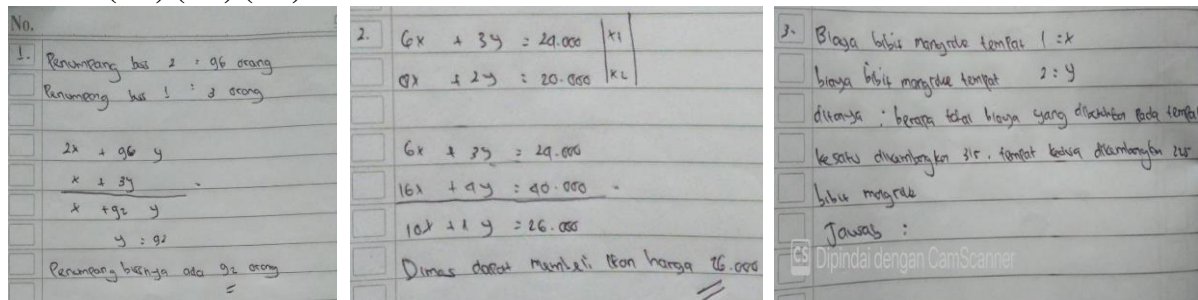 No.
1. Penumpang bus 2 : 96 orang
Penumpang bus 1 : 3 orang
2x + 96 y
x + 3y -
x + 92 y
y = 92
Penumpang busnya ada 92 orang
2. 6x + 3y = 24.000 | x1
8x + 2y = 20.000 | x2
6x + 3y = 24.000
16x + 4y = 40.000 -
10x + 1 y = 26.000
Dimas dapat membeli ikon harga 26.000
3. Biaya bibit mangrove tempat 1 = x
biaya bibit mangrove tempat 2 = y
ditanya : berapa total biaya yang dibutuhkan pada tempat
kesatu dikembangkan 315. tempat kedua dikembangkan 245
bibit mangrove
Jawab :
CS Dipindai dengan CamScanner